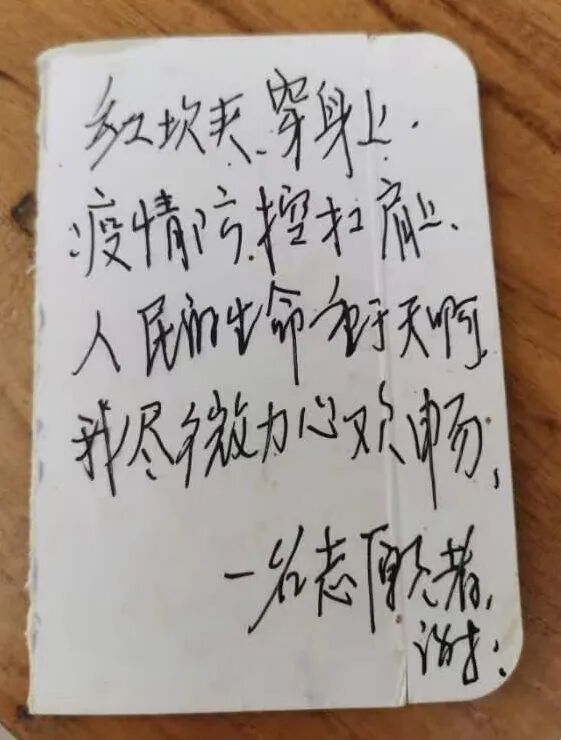 红坎夹、穿身上.
疫情防控扛肩上、
人民的生命重于天啊,
我尽微力心欢畅,
一名志愿者,
谢: